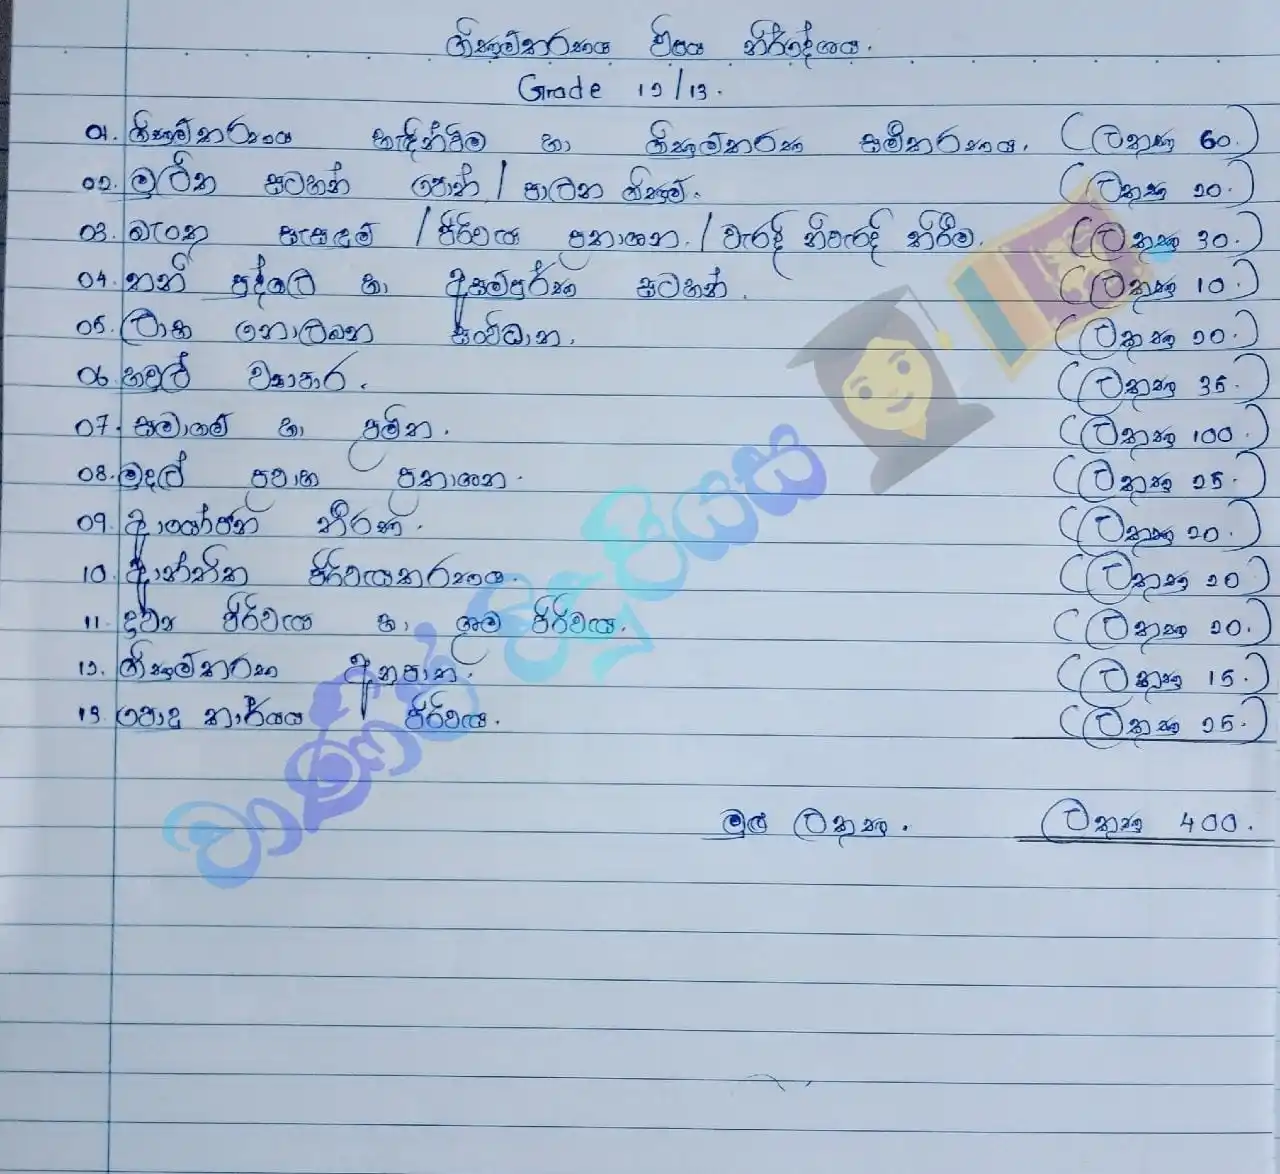 ගිණුම්කරණය විෂය නිර්දේශය.
Grade 12/13.
01. ගිණුම්කරණය හැඳින්වීම හා ගිණුම්කරණ සමීකරණය. (ලකුණු 60.)
02. මූලික සටහන් පොත් / පාලන ගිණුම්. (ලකුණු 20.)
03. බැංකු සැසඳුම් / පිරිවැය ප්‍රකාශන. / වැරදි නිවැරදි කිරීම. (ලකුණු 30.)
04. තනි පුද්ගල හා අසම්පූර්ණ සටහන්. (ලකුණු 10.)
05. ලාභ නොලබන සංවිධාන. (ලකුණු 20.)
06. හවුල් ව්‍යාපාර. (ලකුණු 35.)
07. සමාගම් හා ප්‍රමිත. (ලකුණු 100.)
08. මුදල් ප්‍රවාහ ප්‍රකාශන. (ලකුණු 25.)
09. ආයෝජන තීරණ. (ලකුණු 20.)
10. ආන්තික පිරිවැයකරණය. (ලකුණු 20)
11. ද්‍රව්‍ය පිරිවැය හා ශ්‍රම පිරිවැය. (ලකුණු 20.)
12. ගිණුම්කරණ අනුපාත. (ලකුණු 15.)
13. පොදු කාර්යය පිරිවැය. (ලකුණු 25.)
මුලු ලකුණු. ලකුණු 400.